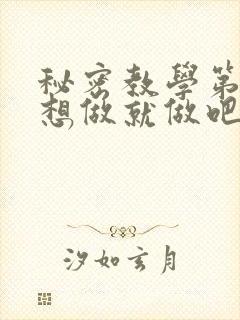 秘密教學第
想做就做吧
汐如玄月